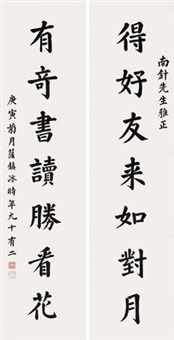 南針先生雅正
得好友来如對月
有奇書讀勝看花
庚寅菊月薩鎮冰時年九十有二